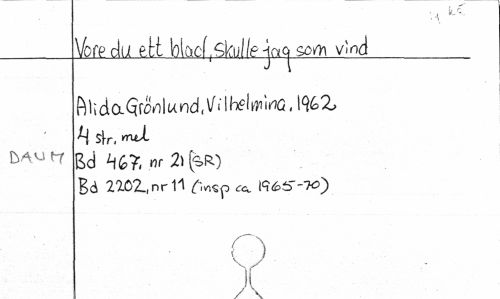 Vore du ett blad, skulle jag som vind
Alida Grönlund, Vilhelmina, 1962
4 str, mel
DAUM Bd 467, nr 21 (SR)
Bd 2202, nr 11 (insp ca 1965-70)